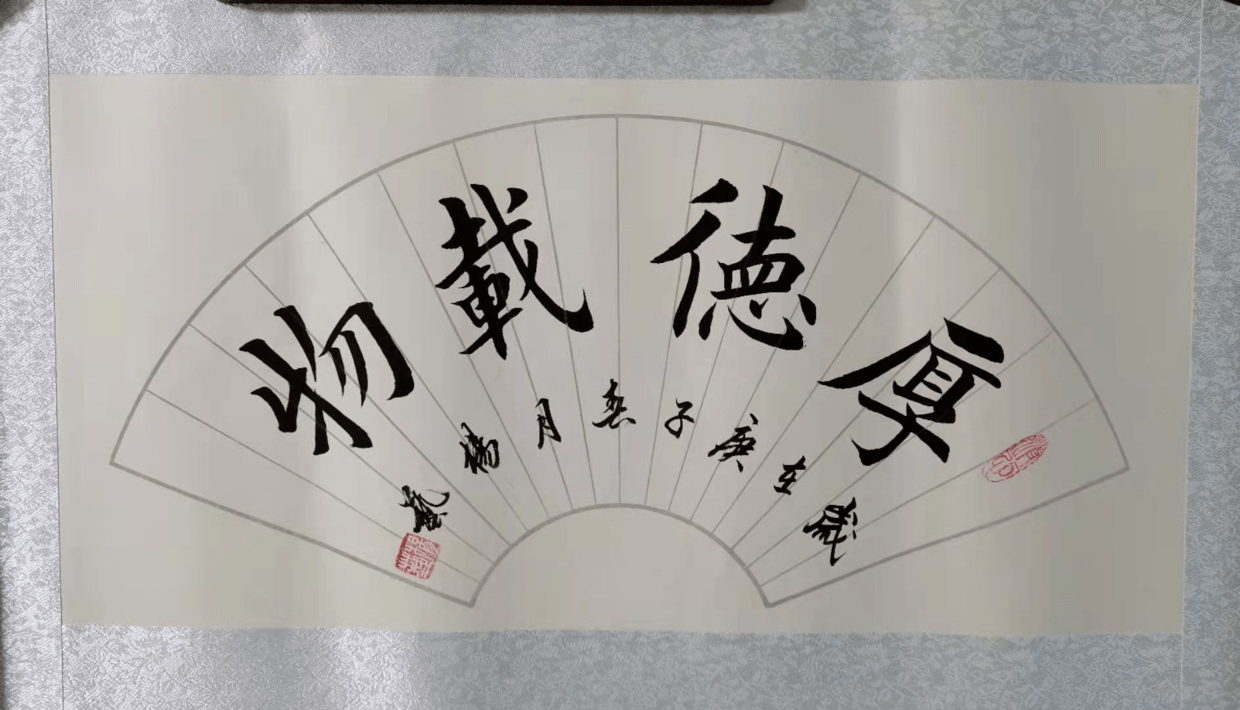 厚德載物
歲在庚子春月楊